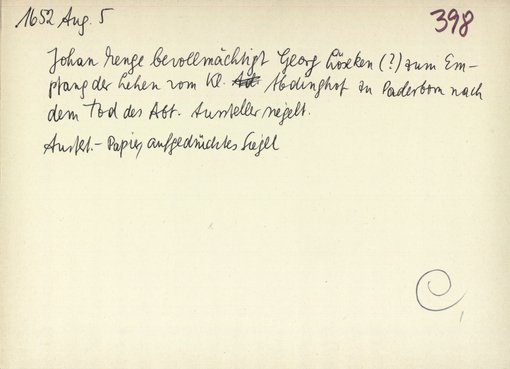 1652 Aug. 5
398
Johan Menge bevollmächtigt Georg Löseken (?) zum Em-
pfang der Lehen vom Kl. Abdinghof zu Paderborn nach
dem Tod des Abt. Aussteller siegelt.
Ausf. - Papier, aufgedrücktes Siegel